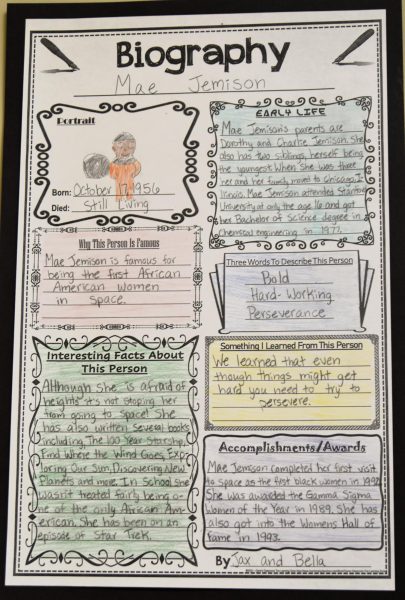 Biography
Mae Jemison
Portrait
Born: October 17, 1956
Died: Still Living
EARLY LIFE
Mae Jemison's parents are
Dorothy and Charlie Jemison. She
also has two siblings, herself being
the youngest. When She was three
her and her family moved to Chicago, I
llinois. Mae Jemison attended Stanford
University at only the age 16 and got
her Bachelor of Science degree in
chemical engineering in 1977.
Why This Person Is Famous
Mae Jemison is famous for
being the first African
American women
in space.
Three Words To Describe This Person
Bold
Hard-Working
Perseverance
Interesting Facts About
This Person
Although She is afraid of
heights it's not stoping her
from going to space! She
has also written Several books
including, The 100 Year Starship,
Find Where the Wind Goes, Exp
loring Our Sun, Discovering New
Planets and more. In School she
wasn't treated fairly being o-
ne of the only African Am-
erican. She has been on an
episode of Star Trek.
Something I Learned From This Person
We learned that even
though things might get
hard you need to try to
persevere.
Accomplishments/Awards
Mae Jemison completed her first visit
to space as the first black women in 1992.
She was awarded the Gamma Sigma
Women of the Year in 1989. She has
also got into the Womens Hall of
fame in 1993.
By Jax and Bella